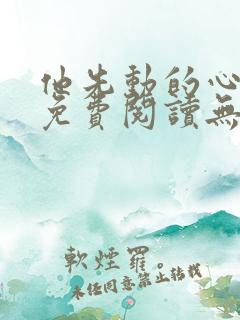 他先動的心
免費閱讀無
軟煙羅。
未經同意禁止轉載